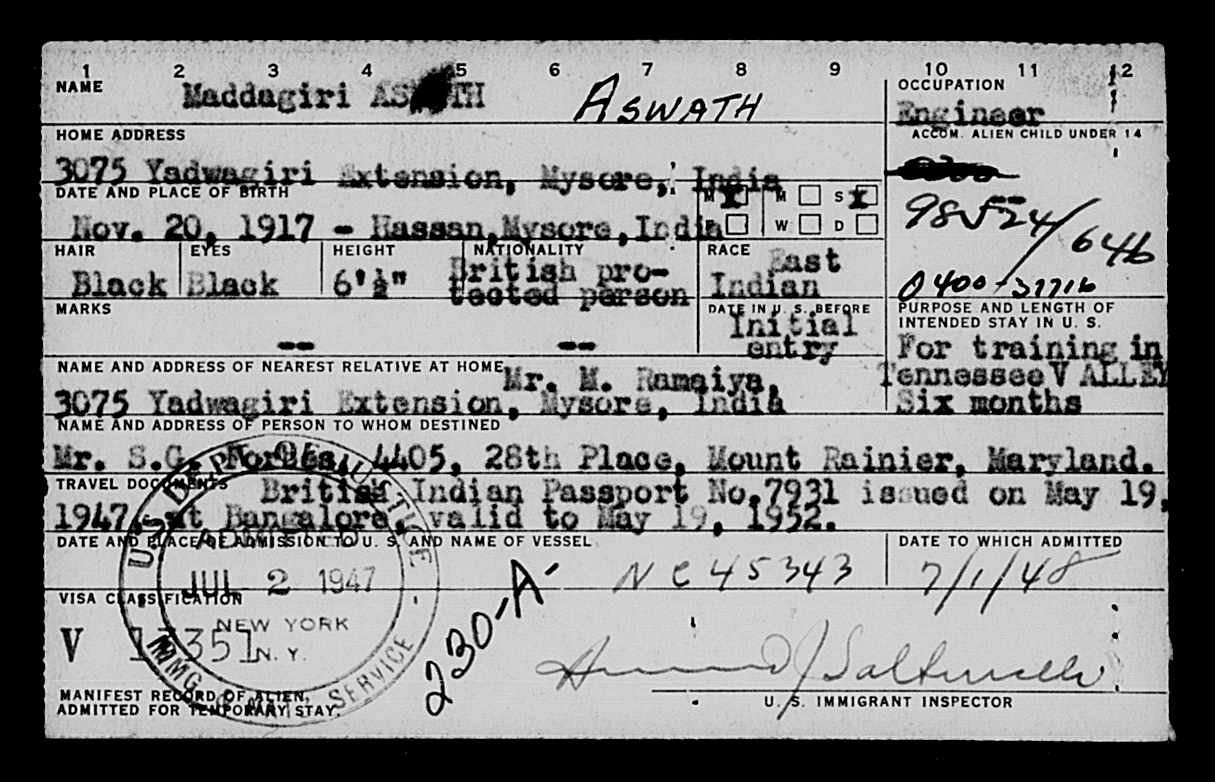 1 2 3 4 5 6 7 8 9 10 11 12
NAME
Maddagiri AS TH ASWATH
OCCUPATION
Engineer
HOME ADDRESS
3075 Yadwagiri Extension, Mysore, India
ACCOM. ALIEN CHILD UNDER 14
DATE AND PLACE OF BIRTH
Nov. 20, 1917 - Hassan,Mysore,India
M X M S X
W D
98524/646
0400-37716
HAIR
Black
EYES
Black
HEIGHT
6'½"
NATIONALITY
British pro-
tected person
RACE
East
Indian
MARKS
-- --
DATE IN U. S. BEFORE
Initial
entry
PURPOSE AND LENGTH OF
INTENDED STAY IN U. S.
For training in
Tennessee VALLEY
Six months
NAME AND ADDRESS OF NEAREST RELATIVE AT HOME
Mr. M. Ramaiya,
3075 Yadwagiri Extension, Mysore, India
NAME AND ADDRESS OF PERSON TO WHOM DESTINED
Mr. S.G. Forbes, 4405, 28th Place, Mount Rainier, Maryland.
TRAVEL DOCUMENTS
British Indian Passport No.7931 issued on May 19,
1947, at Bangalore, valid to May 19, 1952.
DATE AND PLACE OF ADMISSION TO U. S. AND NAME OF VESSEL
NC 45343
DATE TO WHICH ADMITTED
7/1/48
U. S. DEPT. OF JUSTICE
ADMITTED
JUL 2 1947
NEW YORK
N. Y.
IMMG. & NATZ. SERVICE
VISA CLASSIFICATION
V 17351
230-A-
MANIFEST RECORD OF ALIEN,
ADMITTED FOR TEMPORARY STAY.
U. S. IMMIGRANT INSPECTOR